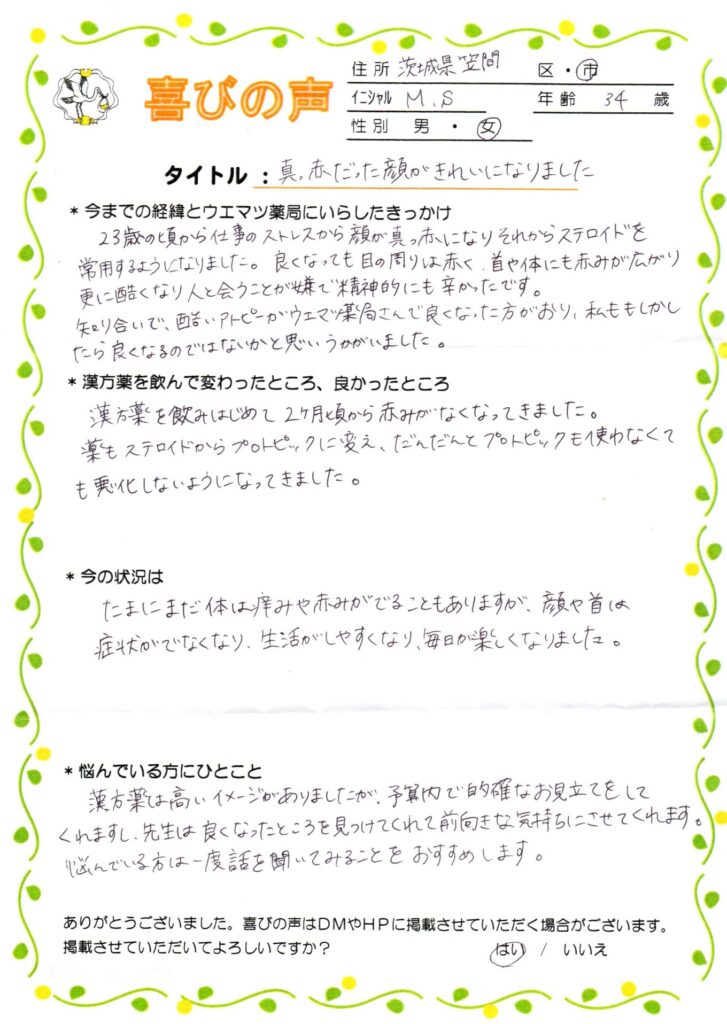 喜びの声
住所 茨城県笠間 区・市
イニシャル M.S 年齢 34 歳
性別 男・女
タイトル：真っ赤だった顔がきれいになりました
＊今までの経緯とウエマツ薬局にいらしたきっかけ
23歳の頃から仕事のストレスから顔が真っ赤になりそれからステロイドを
常用するようになりました。良くなっても目の周りは赤く、首や体にも赤みが広がり
更に酷くなり人と会うことが嫌で精神的にも辛かったです。
知り合いで、酷いアトピーがウエマツ薬局さんで良くなった方がおり、私ももしかし
たら良くなるのではないかと思いうかがいました。
＊漢方薬を飲んで変わったところ、良かったところ
漢方薬を飲みはじめて2ヶ月頃から赤みがなくなってきました。
薬もステロイドからプロトピックに変え、だんだんとプロトピックも使わなくて
も悪化しないようになってきました。
＊今の状況は
たまにまだ体は痒みや赤みがでることもありますが、顔や首は
症状がでなくなり、生活がしやすくなり、毎日が楽しくなりました。
＊悩んでいる方にひとこと
漢方薬は高いイメージがありましたが、予算内で的確なお見立てをして
くれますし、先生は良くなったところを見つけてくれて前向きな気持ちにさせてくれます。
悩んでいる方は一度話を聞いてみることをおすすめします。
ありがとうございました。喜びの声はDMやHPに掲載させていただく場合がございます。
掲載させていただいてよろしいですか？ はい / いいえ